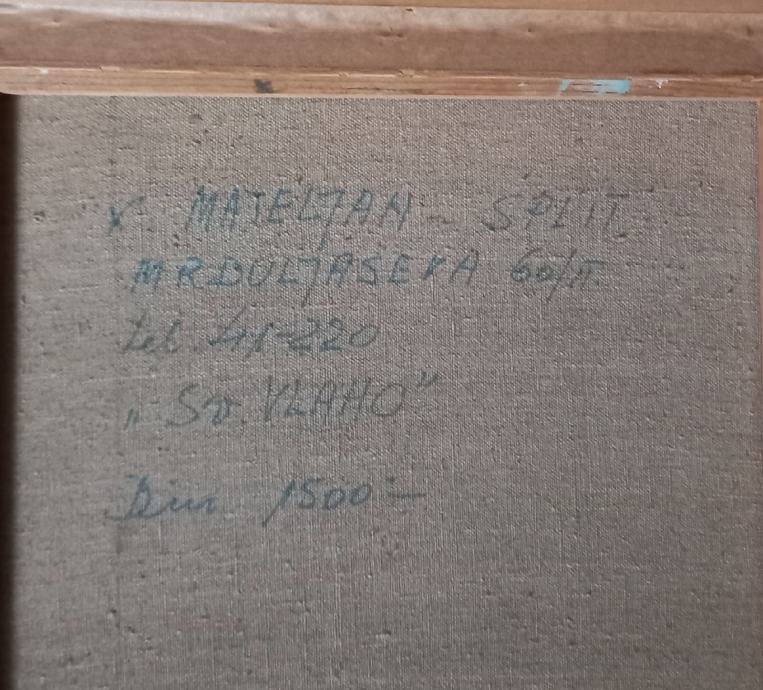 V. MATELJAN - SPLIT
MRDULJAŠEVA 60/II
tel. 41-220
"Sv. VLAHO"
Din 1500.-